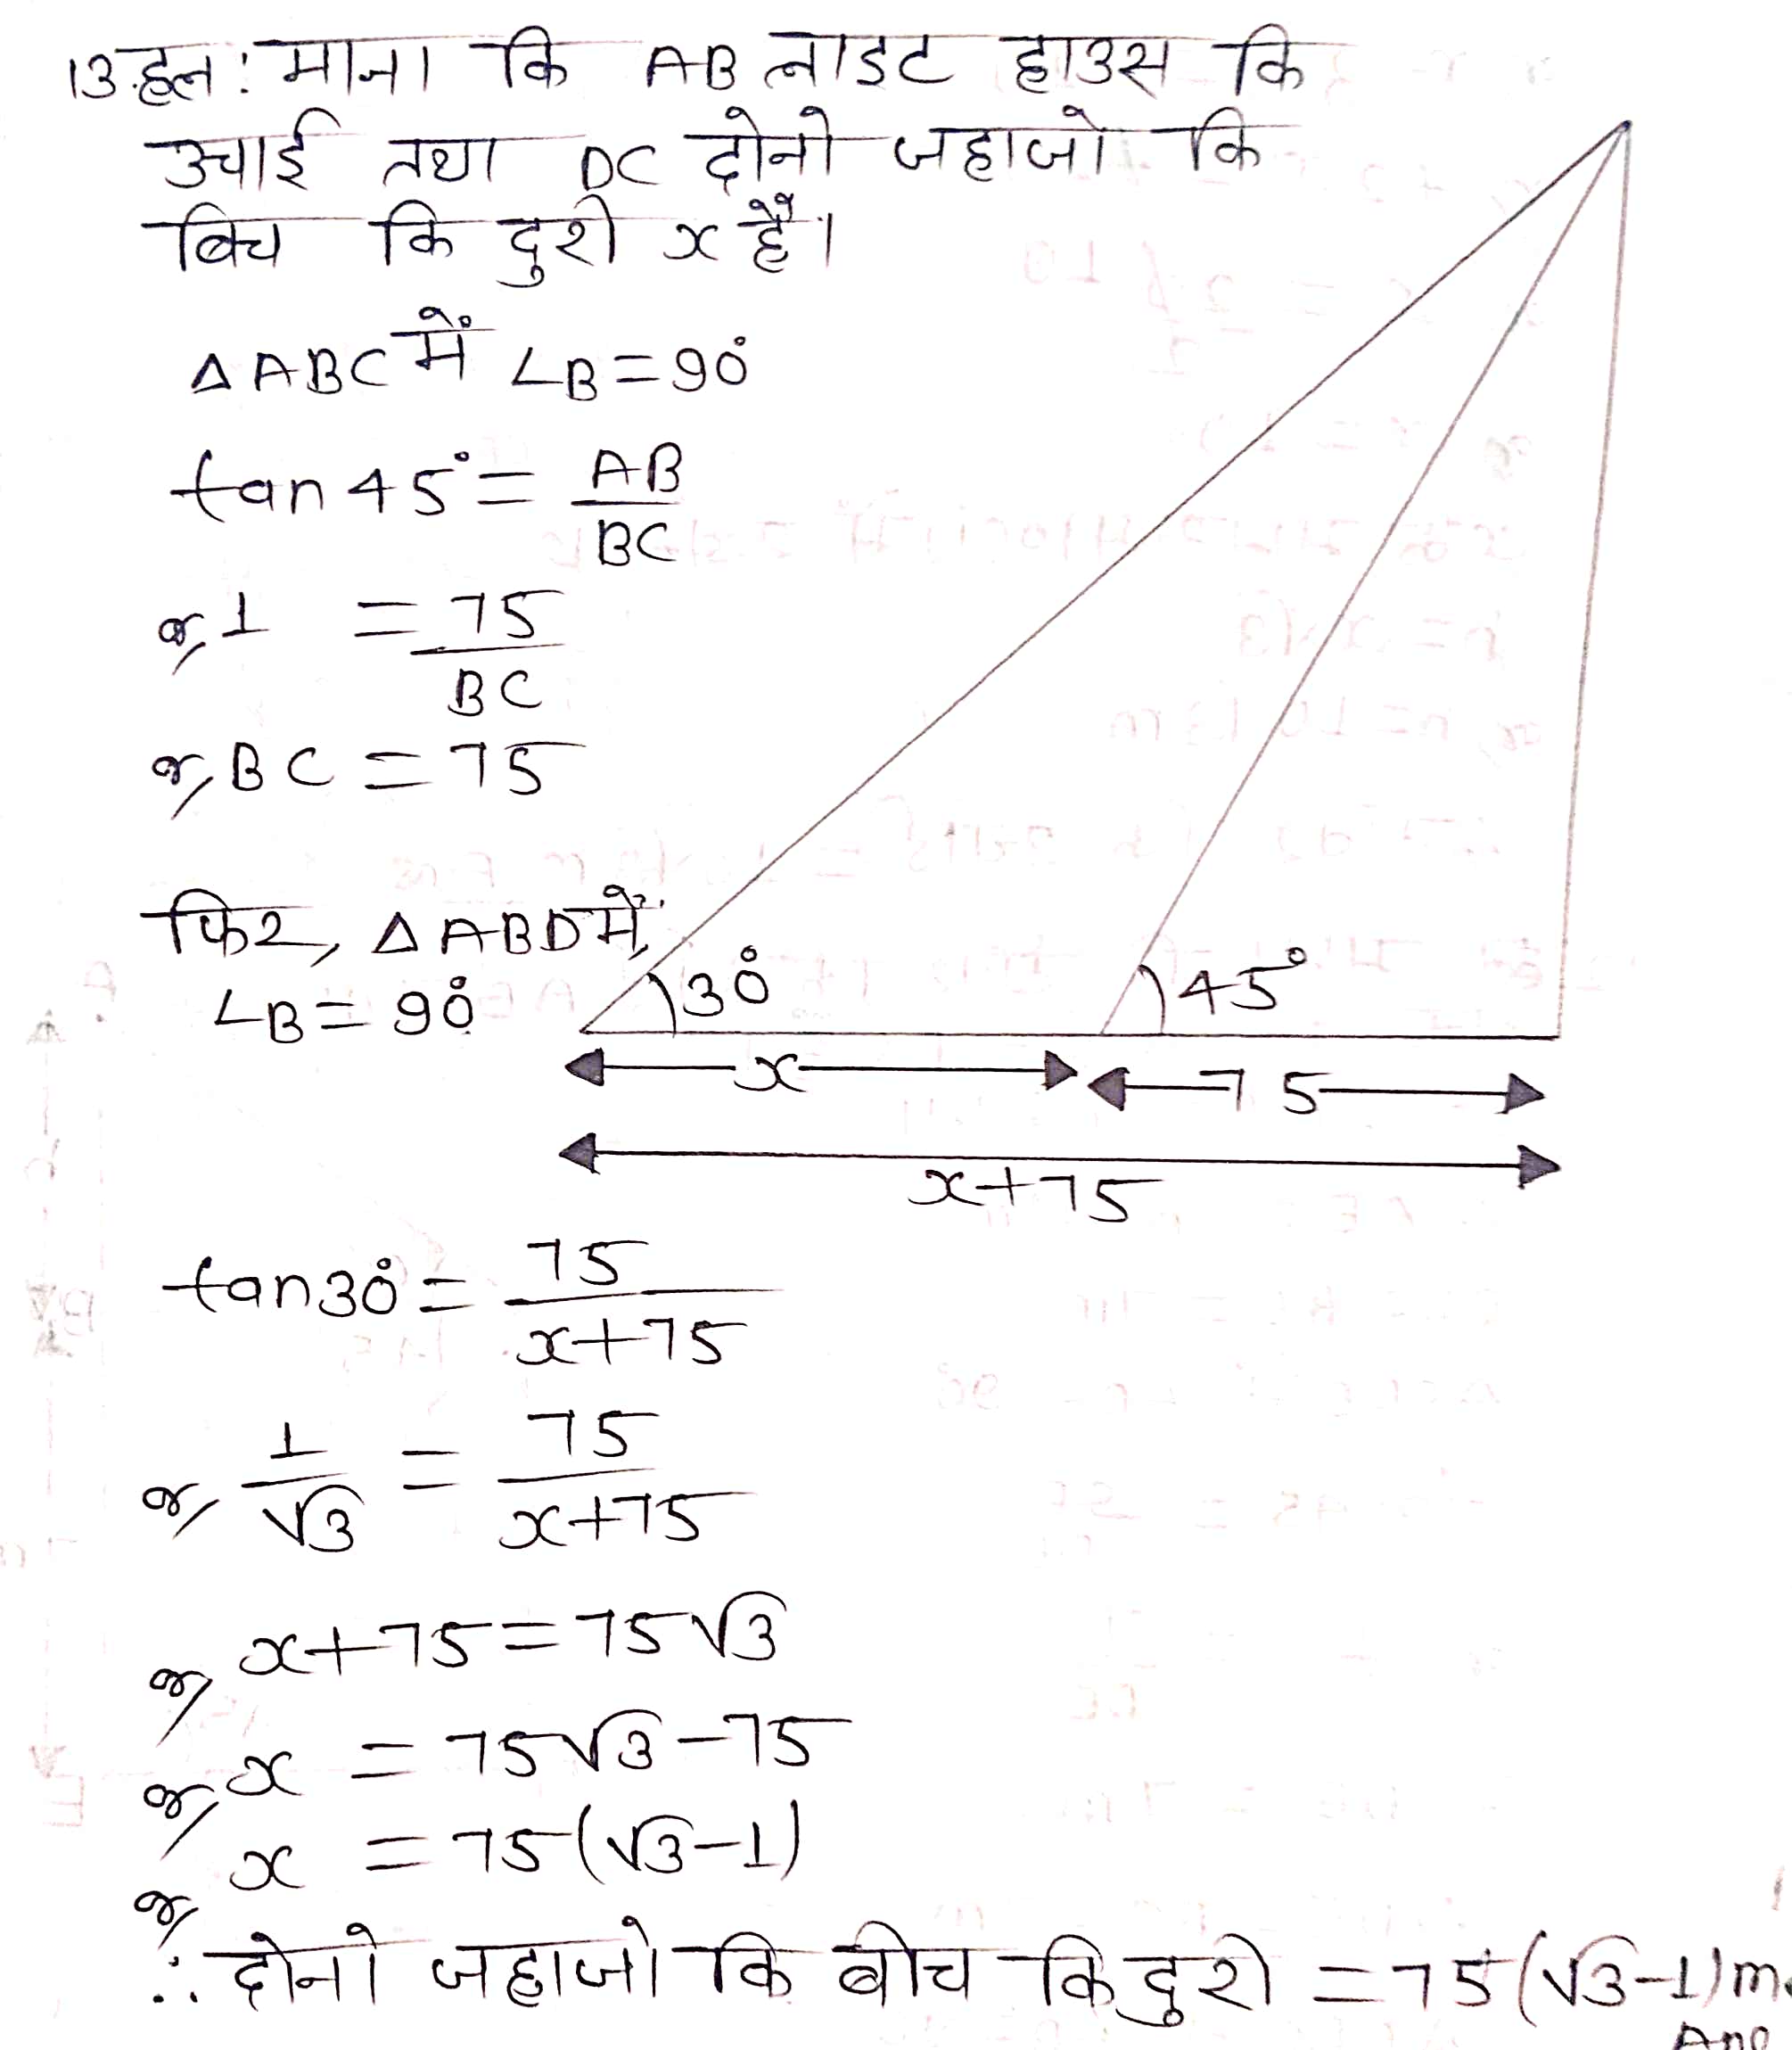 13.हल: माना कि AB लाइट हाउस कि
उचाई तथा DC दोनो जहाजो कि
बिच कि दुरी x है।
△ABC में ∠B=90°
tan 45° = AB
BC
or, 1 = 75
BC
or, BC = 75
फिर, △ABD में,
∠B = 90°
30°
45°
x
75
x+75
tan30° = 75
x+75
or, 1 = 75
√3 x+75
or, x+75=75√3
or, x = 75√3-75
or, x = 75(√3-1)
∴ दोनो जहाजो कि बीच कि दुरी =75(√3-1)m.
Ans